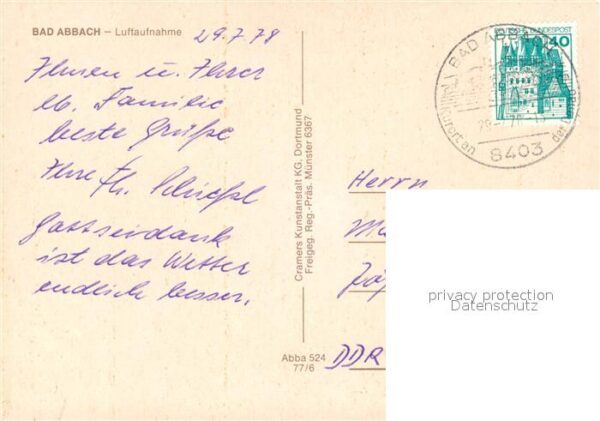 BAD ABBACH – Luftaufnahme
29.7.78
Ihnen u. Ihrer
lb. Familie
beste Grüße
Ihre
Gottseidank
ist das Wetter
endlich besser.
Cramers Kunstanstalt KG. Dortmund
Freigeg. Reg.-Präs. Münster 6367
Abba 524
77/6
DEUTSCHE BUNDESPOST
40
BAD ABBACH
8403
Herrn
DDR
privacy protection
Datenschutz